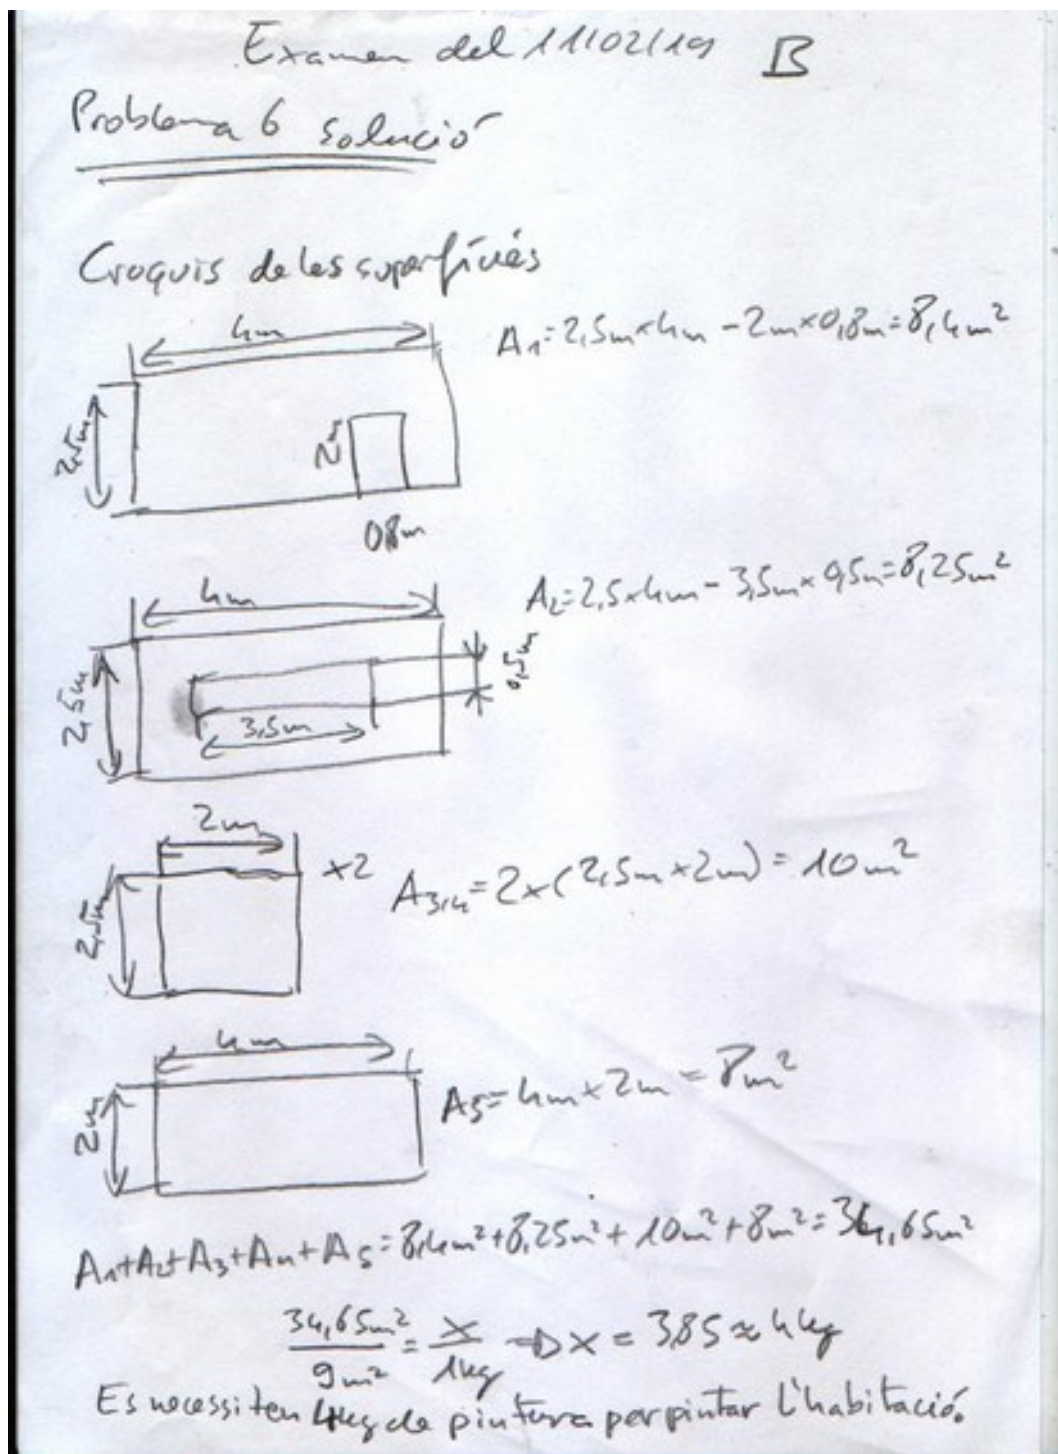 Examen del 11/02/19 B
Problema 6 solució
Croquis de les superfícies
4m
2,5m
2m
0,8m
A₁=2,5m×4m - 2m×0,8m=8,4m²
4m
2,5m
3,5m
0,5m
A₂=2,5×4m - 3,5m×0,5m=8,25m²
2m
2,5m
×2
A₃,₄=2×(2,5m×2m) = 10m²
4m
2m
A₅=4m×2m = 8m²
A₁+A₂+A₃+A₄+A₅=8,4m²+8,25m²+10m²+8m²=34,65m²
34,65m²/9m² = X/1kg ⇒ X = 3,85 ≈ 4kg
Es necessiten 4kg de pintura per pintar l'habitació.